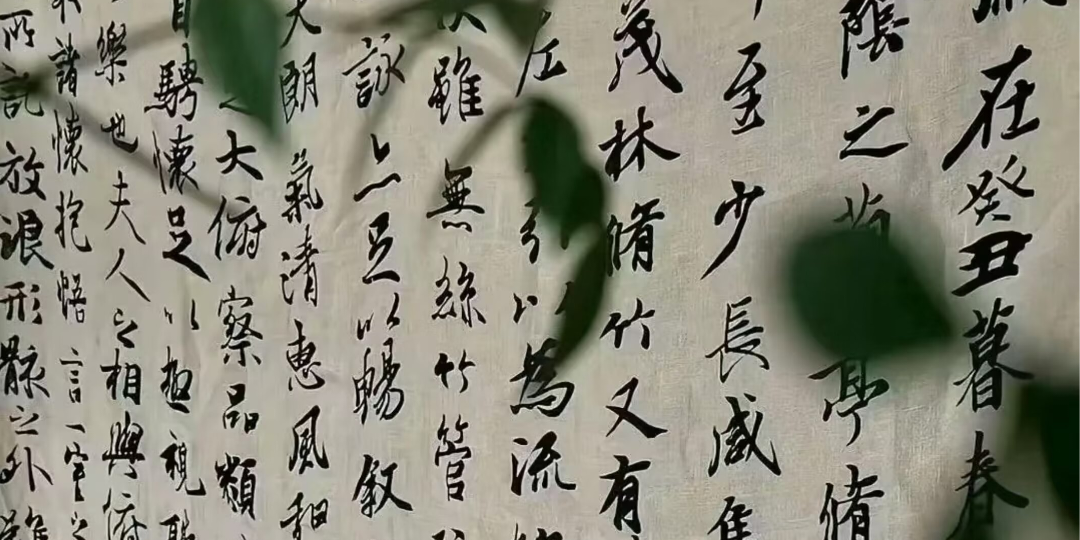 在癸丑暮春
陰之蘭亭脩
至少長咸集
茂林脩竹又有
左引以為流
雖無絲竹管
詠亦足以暢敘
天朗氣清惠風和
之大俯察品類
目騁懷足以極視聽
樂也夫人之相與俯
諸懷抱悟言一室之
所託放浪形骸之外雖